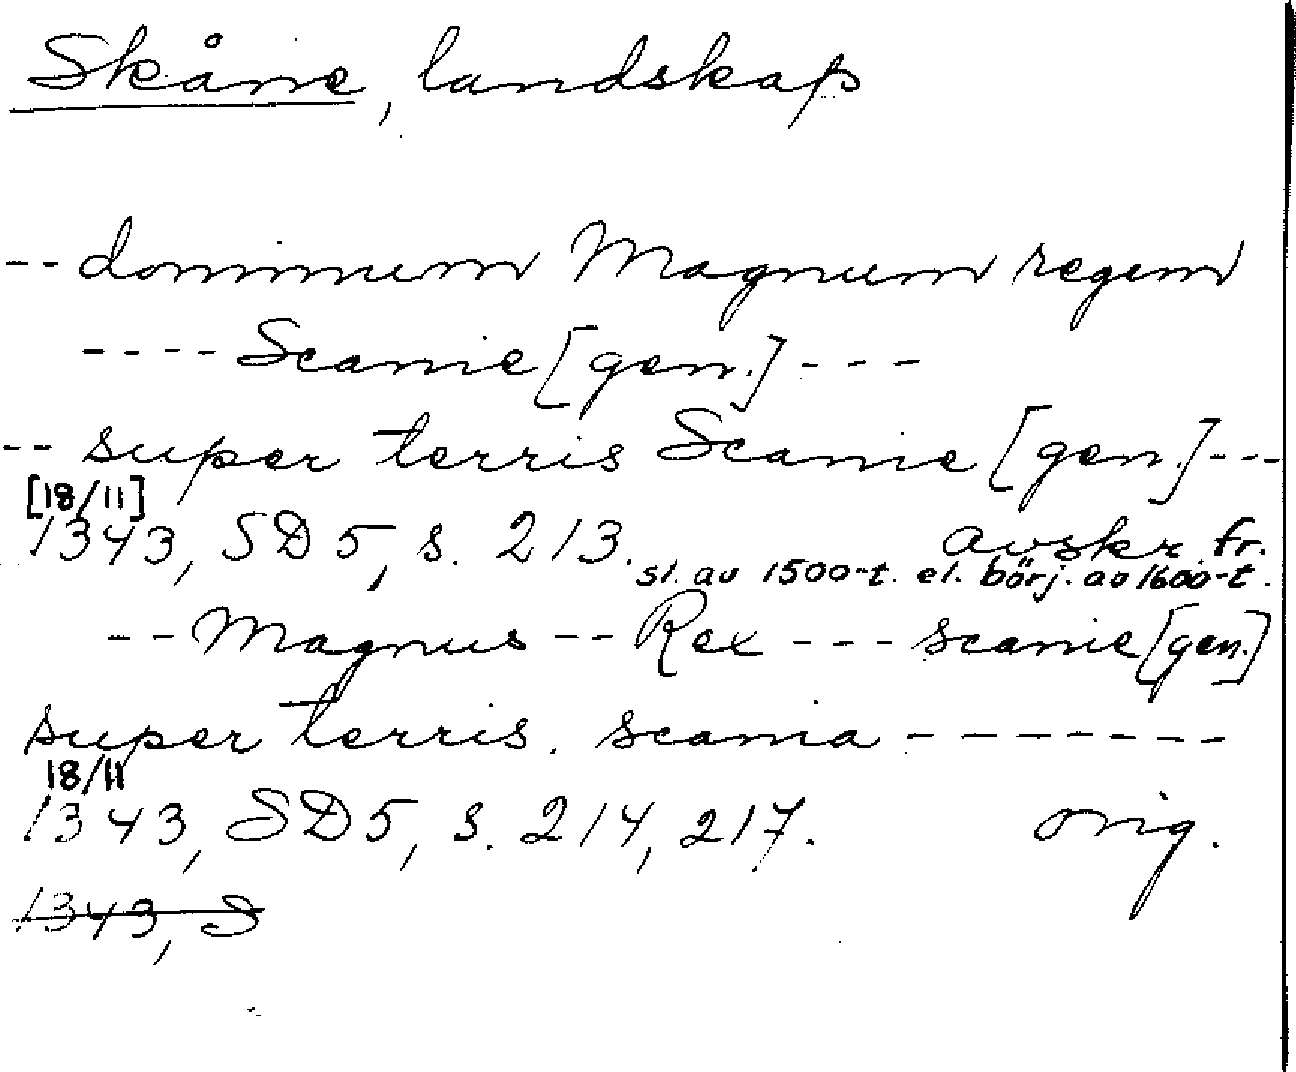 Skåne, landskap
-- dominum Magnum regem
---- Scanie [gen.] ---
-- super terris Scanie [gen.] ---
[18/11]
1343, SD 5, s. 213. avskr. fr.
sl. av 1500-t. el. börj. av 1600-t.
-- Magnus -- Rex --- scanie [gen.]
super terris. scania -------
18/11
1343, SD 5, s. 214, 217. orig.
1343, S